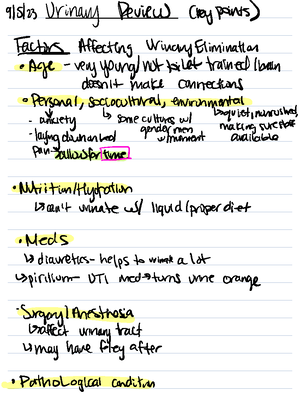 9/5/23 Urinary Review (key points)
Factors Affecting Urinary Elimination
• Age - very young/not toilet trained/brain
doesn't make connections
• Personal, sociocultural, environmental
- anxiety
↳ some cultures w/
gender men
w/ women
↳ quiet, nourished,
making sure
available
- laying down and
pain → allow for time
• Nutrition/Hydration
↳ can't urinate w/ liquid/proper diet
• Meds
↳ diuretics - helps to urinate a lot
↳ UTI med → turns urine orange
• Surgery/Anesthesia
↳ affect urinary tract
↳ may have foley after
• Pathological condition